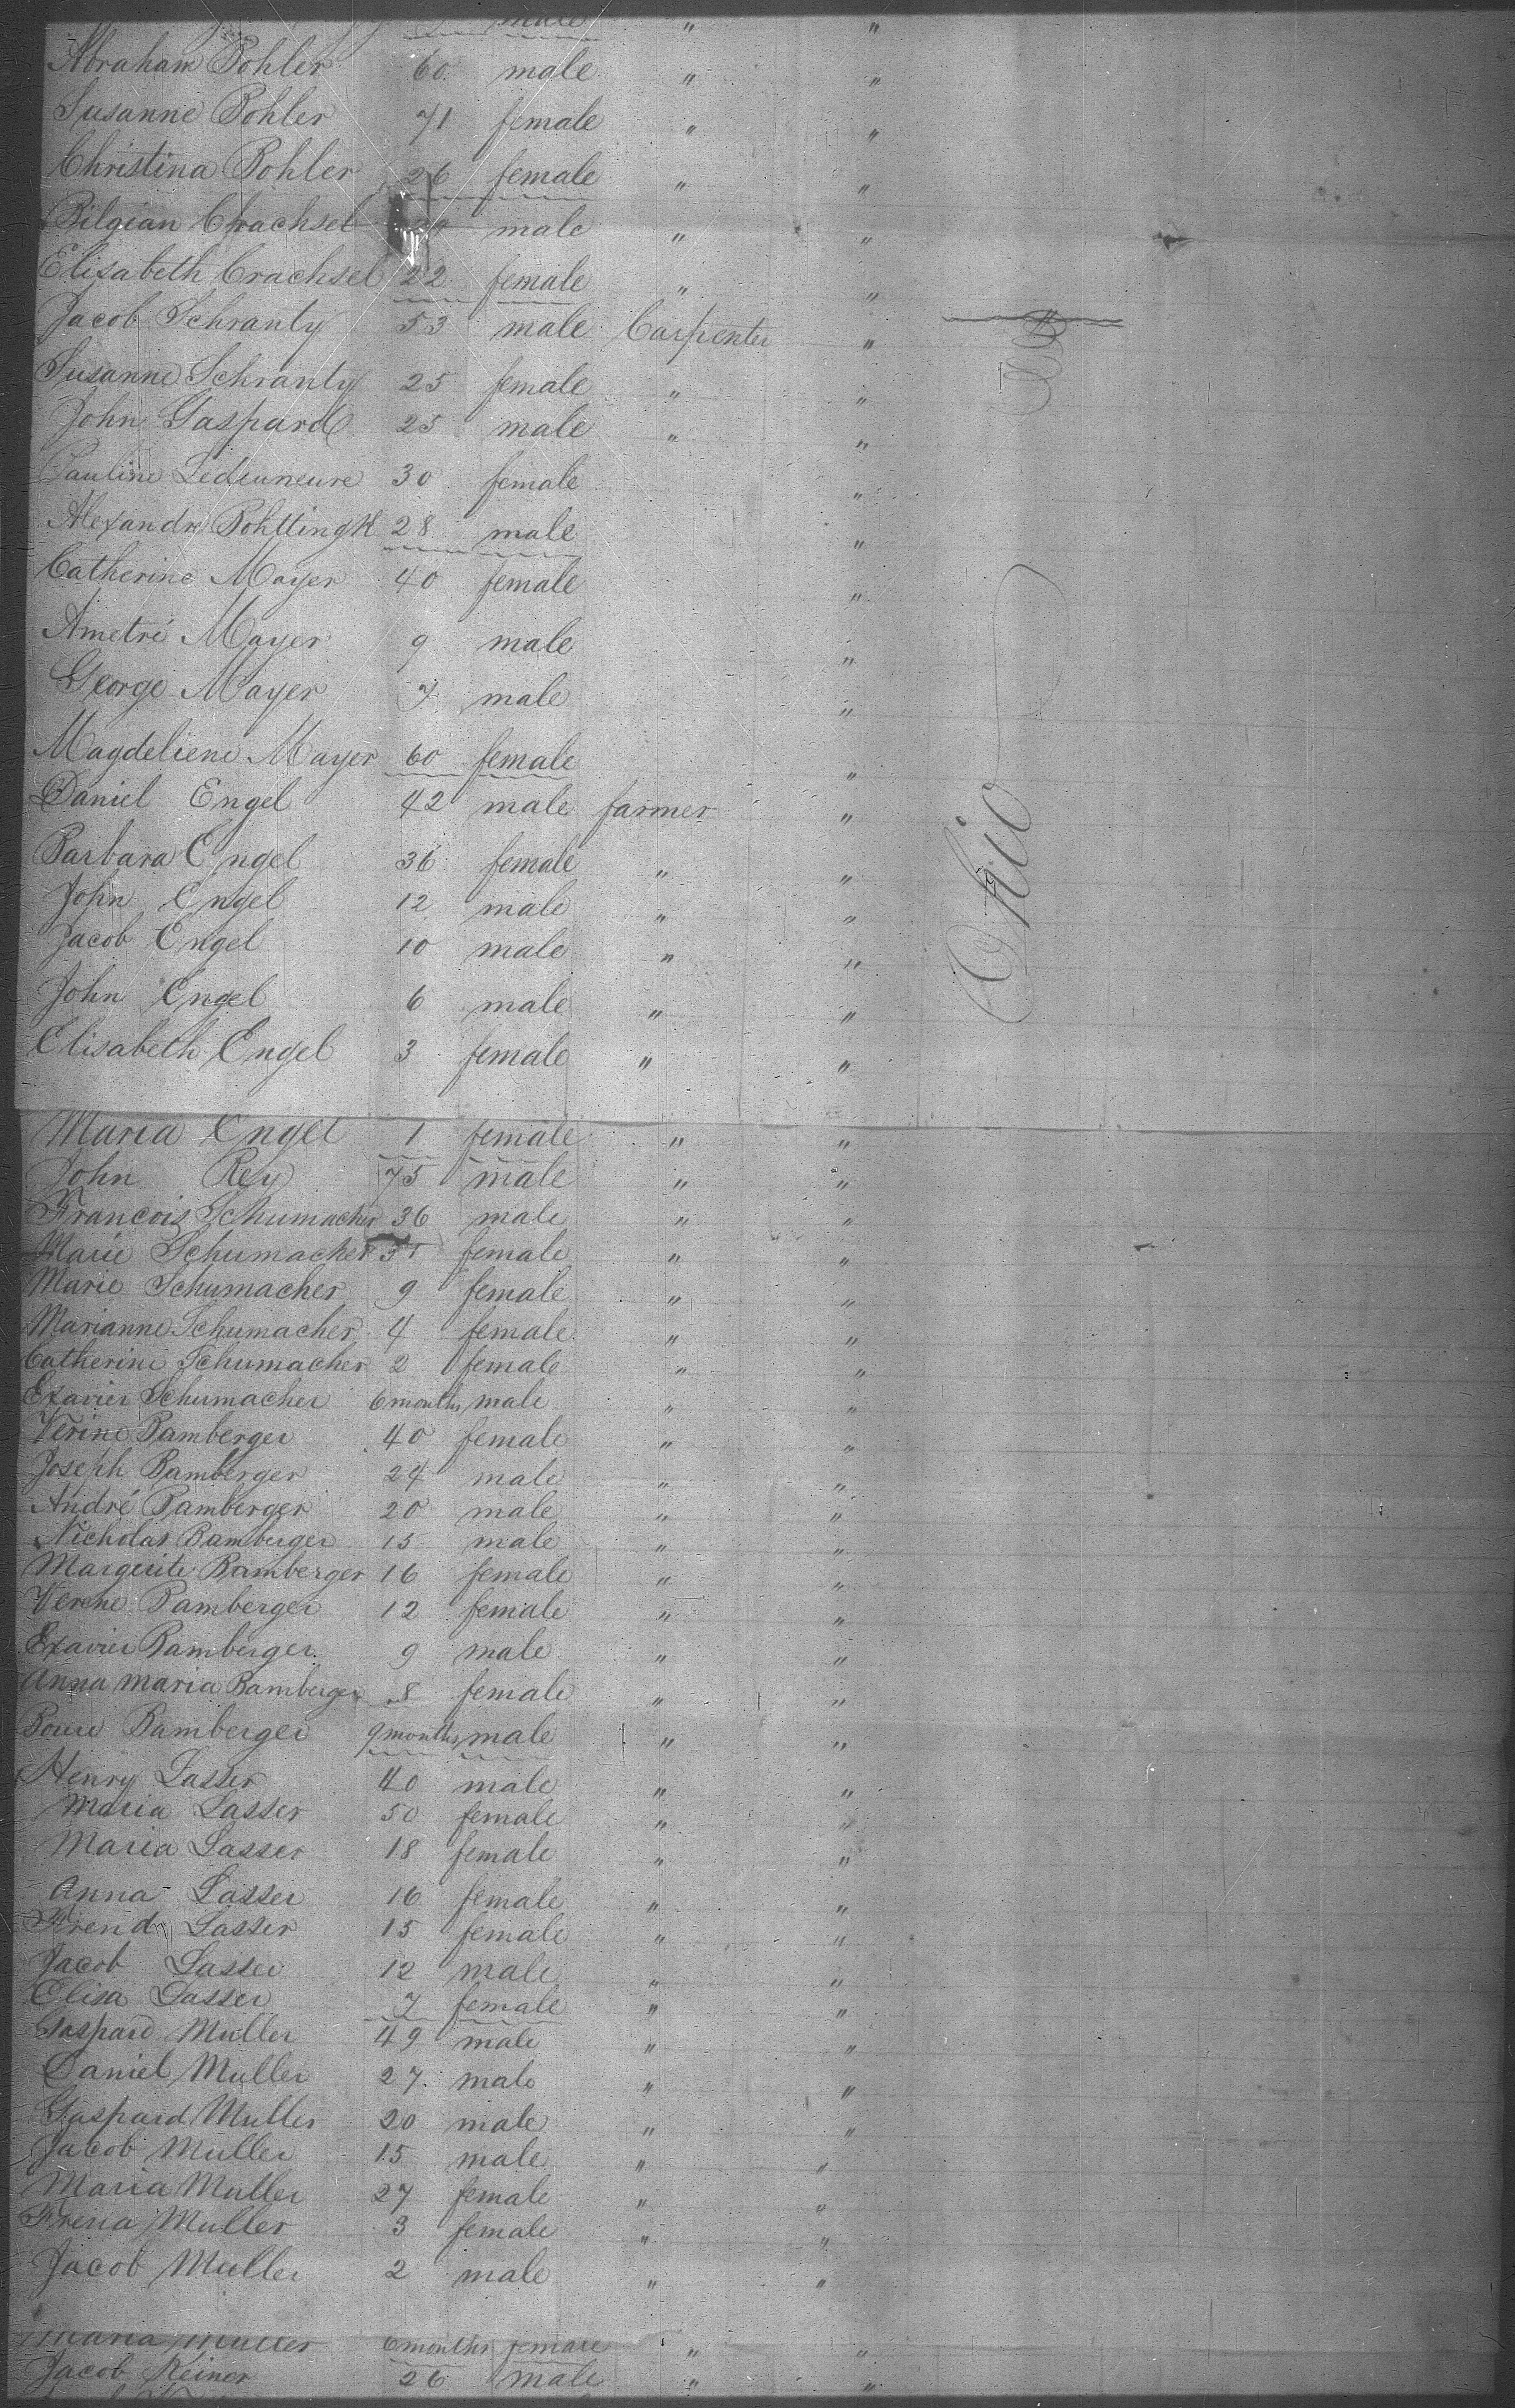 male " "
Abraham Bohler 60 male " "
Susanne Bohler 71 female " "
Christina Bohler 26 female " "
Bilgian Crachsel male " "
Elisabeth Crachsel 22 female " "
Jacob Schranty 53 male Carpenter "
Susanne Schranty 25 female " "
John Gaspard 25 male " "
Pauline Ledeuneure 30 female "
Alexandre Bohttingk 28 male "
Catherine Mayer 40 female "
Ametré Mayer 9 male "
George Mayer 7 male "
Magdeliene Mayer 60 female "
Daniel Engel 42 male farmer "
Barbara Engel 36 female " "
Ohio
John Engel 12 male " "
Jacob Engel 10 male " "
John Engel 6 male " "
Elisabeth Engel 3 female " "
Maria Engel 1 female " "
John Rey 75 male " "
Francois Schumacher 36 male " "
Marie Schumacher female " "
Marie Schumacher 9 female " "
Marianne Schumacher 4 female " "
Catherine Schumacher 2 female " "
Exavier Schumacher 6 months male " "
Verine Bamberger 40 female " "
Joseph Bamberger 24 male " "
André Bamberger 20 male " "
Nicholas Bamberger 15 male " "
Margerite Bamberger 16 female " "
Verene Bamberger 12 female " "
Exavier Bamberger 9 male " "
Anna Maria Bamberger 8 female " "
Bamberger 9 months male " "
Henry Lasser 40 male " "
Maria Lasser 50 female " "
Maria Lasser 18 female " "
Anna Lasser 16 female " "
Lasser 15 female " "
Jacob Lasser 12 male " "
Elisa Lasser 7 female " "
Gaspard Muller 49 male " "
Daniel Muller 27 male " "
Gaspard Muller 20 male " "
Jacob Muller 15 male " "
Maria Muller 27 female " "
Frena Muller 3 female " "
Jacob Muller 2 male " "
Maria Muller 6 months female " "
Jacob Reiner 26 male " "